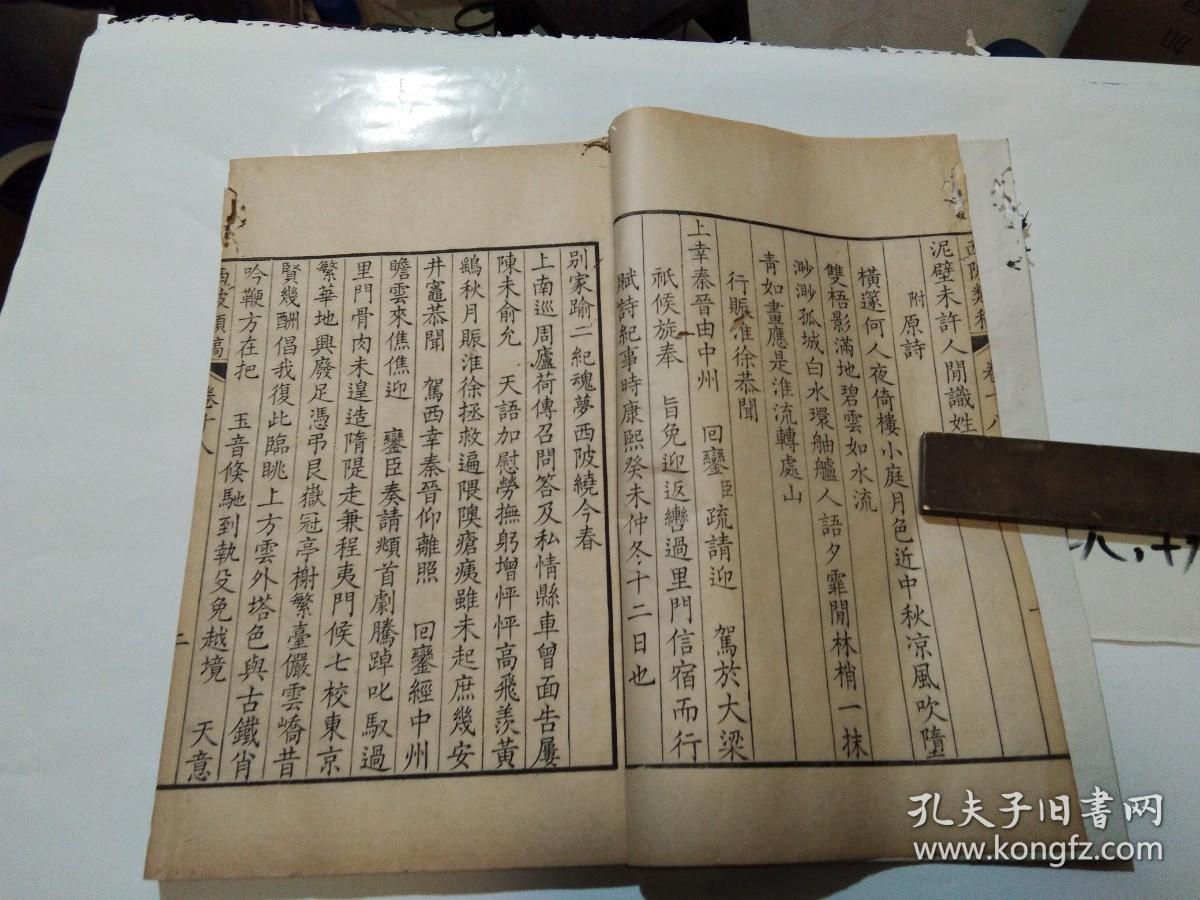 泥壁未許人閒識姓
附原詩
橫篴何人夜倚樓小庭月色近中秋凉風吹墮
雙梧影滿地碧雲如水流
渺渺孤城白水環舳艫人語夕霏閒林梢一抹
青如畫應是淮流轉處山
行賑淮徐恭聞
上幸秦晉由中州 回鑾臣疏請迎 駕於大梁
祇候旋奉 旨免迎返轡過里門信宿而行
賦詩紀事時康熙癸未仲冬十二日也
別家踰二紀魂夢西陂繞今春
上南巡周廬荷傳召問答及私情縣車曾面告屢
陳未俞允 天語加慰勞撫躬增怦怦高飛羨黃
鵠秋月賑淮徐拯救遍隈隩瘡痍雖未起庶幾安
井竈恭聞 駕西幸秦晉仰離照 回鑾經中州
瞻雲來僬僬迎 鑾臣奏請頫首劇騰踔叱馭過
里門骨肉未遑造隋隄走兼程夷門候七校東京
繁華地興廢足憑弔艮嶽冠亭榭繁臺儼雲嶠昔
賢幾酬倡我復此臨眺上方雲外塔色與古鐵肖
吟鞭方在把 玉音倏馳到執殳免越境 天意
西陂類稿 卷十八 二
孔夫子旧书网
www.kongfz.com